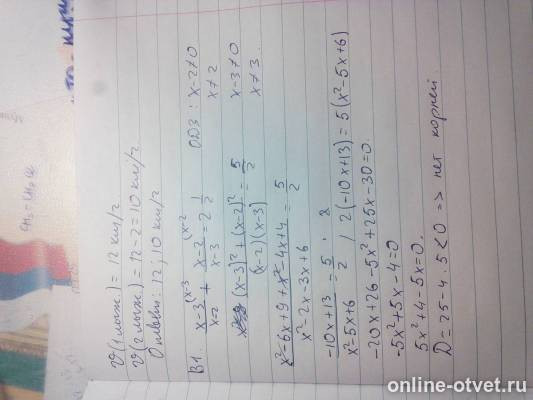 CH₃ - CH₂ Cl
ϑ(1 лыж.) = 12 км/г
ϑ(2 лыж.) = 12-2 = 10 км/г
Ответ: 12; 10 км/г
В1. x-3^(x-3 / x-2 + x-2^(x-2 / x-3 = 2 1/2 ОДЗ: x-2≠0
x≠2
(x-3)² + (x-2)² / (x-2)(x-3) = 5/2 x-3≠0
x≠3.
x²-6x+9+x²-4x+4 / x²-2x-3x+6 = 5/2
-10x+13 / x²-5x+6 = 5/2 / 2(-10x+13) = 5(x²-5x+6)
-20x+26-5x²+25x-30=0.
-5x²+5x-4=0
5x²+4-5x=0.
D=25-4·5<0 => нет корней
online-otvet.ru